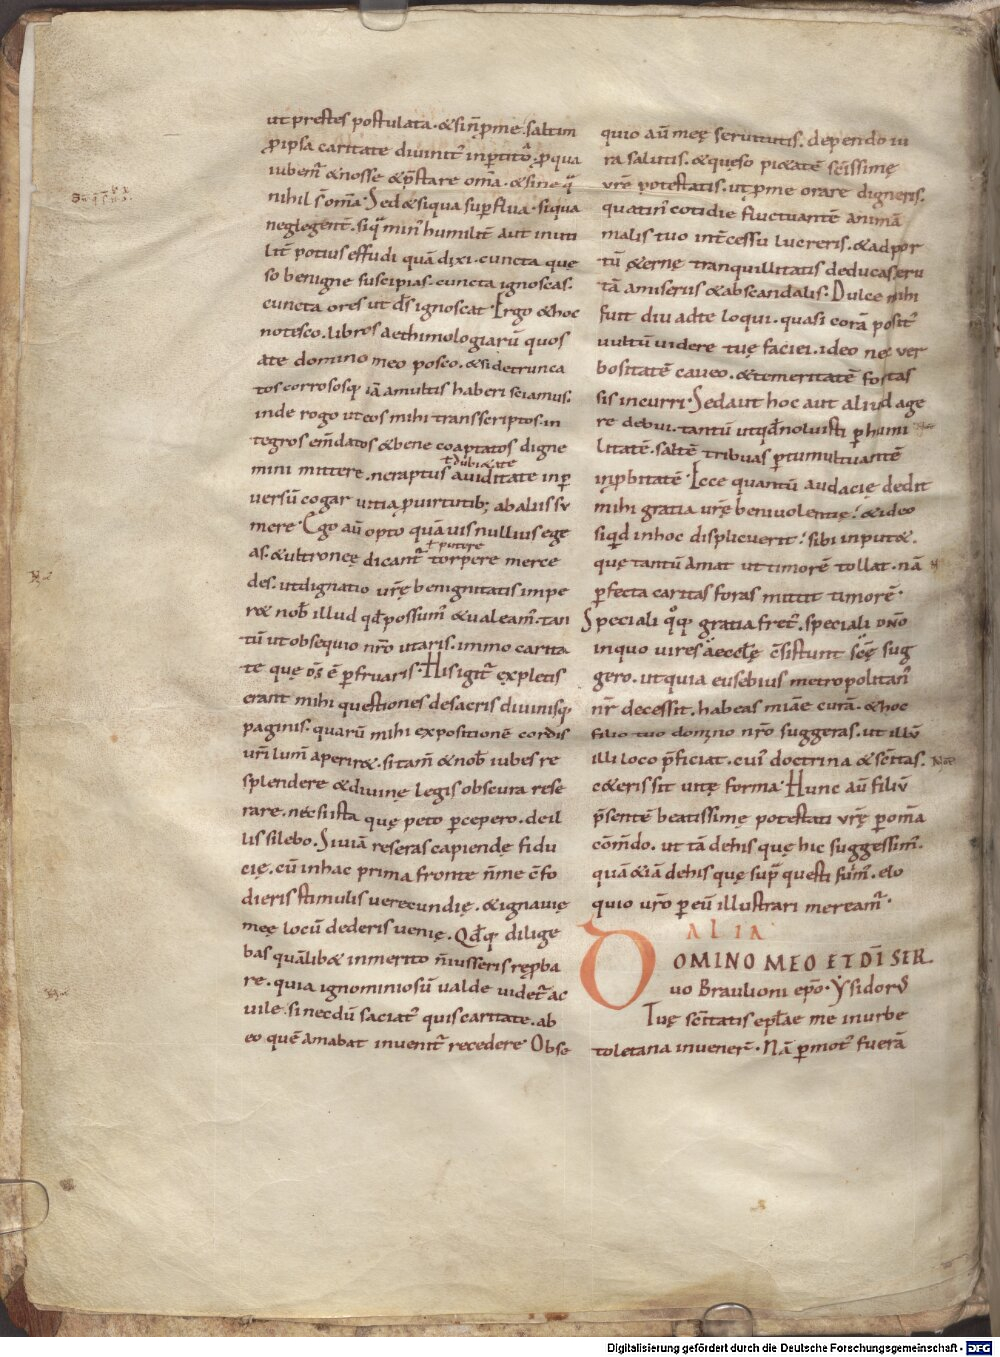 ut prestes postulata · & si n̄ p me · saltim
p ipsa caritate diuinit' inptito · p qua
iubem' & nosse & p̄stare om̄a · & sine q̄
nihil s̄ om̄a · Sed & siqua supflua · siqua
neglegent̄ · siq̄ min' humilit̄ aut inuti
lit̄ potius effudi quā dixi · cuncta quę
so benigne suscipias · cuncta ignoscas ·
cuncta ores ut d̄s ignoscat · Ergo & hoc
notesco · libros aethimologiarū quos
a te domino meo posco · & si detrunca
tos corrososq; iā a multis haberi sciamus ·
inde rogo ut eos mihi transscriptos · in
tegros em̄datos & bene coaptatos digne
ł dubi&ate
mini mittere · ne raptus auiditate in p
uersū cogar uitia p uirtutib; ab aliis su
mere · Ego aū opto quāuis nullius ege
ł putere
as · & ultroneę dicant̄ torpere merce
des · ut dignatio ur̄ę benignitatis impe
r& nob̄ illud qđ possum' & ualeam' · tan
tū ut obsequio nr̄o utaris · immo carita
te quę d̄s ē pfruaris · His igit̄ expletis
erant mihi questiones de sacris diuinisq;
paginis · quarū mihi expositionē cordis
ur̄i lum̄ aperir& · si tam̄ & nob̄ iubes re
splendere & diuinę legis obscura rese
rare · nec si ista quę peto pcepero · de il
lis silebo · Si uiā reseras capiendę fidu
cię · cū in hac prima fronte n̄ me c̄fo
dieris stimulis uerecundię · & ignauię
meę locū dederis uenię · Qđq; dilige
bas quālib& inmerito n̄ iusseris rępba
re · quia ignominiosū ualde uidet̄ ac
uile · si necdū saciat' quis caritate · ab
eo quē amabat inuenit̄ recedere · Obse
quio aū meę seruitutis · dependo iu
ra salutis · & quęso pi&atē sc̄issimę
ur̄ę potestatis · ut p me orare digneris ·
quatin' cotidie fluctuantē animā
malis tuo int̄cessu lucreris · & ad por
tū &ernę tranquillitatis deducas eru
tā a miseriis & ab scandalis · Dulce mihi
fuit diu ad te loqui · quasi corā posit'
uultū uidere tuę faciei · ideo nec ver
bositatē caueo · & temeritatē fortas
sis incurri · Sed aut hoc aut aliud age
re debui · tantū ut qđ noluisti p humi
litatē · saltē tribuas p tumultuantē
inpbitatē · Ecce quantū audacię dedit
mihi gratia ur̄ę beniuolentię · & ideo
siqđ in hoc displicuerit · sibi input& ·
quę tantū amat ut timorē tollat · nā
pfecta caritas foras mittit timorē ·
Speciali qoq; gratia fret' · speciali dn̄o
in quo uires aecclę c̄sistunt sc̄ę sug
gero · ut quia eusebius metropolitan'
nr̄ decessit · habeas miāe curā · & hoc
filio tuo domno nr̄o suggeras · ut illū
illi loco p̄ficiat · cui' doctrina & sc̄itas ·
c&eris sit uitę forma · Hunc aū filiū
p̄sentē beatissimę potestati ur̄ę p om̄a
com̄do · ut tā de his quę hic suggessim' ·
quā &iā de his quę sup̄ questi sum' · elo
quio ur̄o p eū illustrari mereamr̄ ·
ALIA
DOMINO MEO ET DĪ SER
uo Braulioni epō · Ysidorus
Tuę sc̄itatis epłae me in urbe
toletana inuener̄ · Nā pmot' fuerā